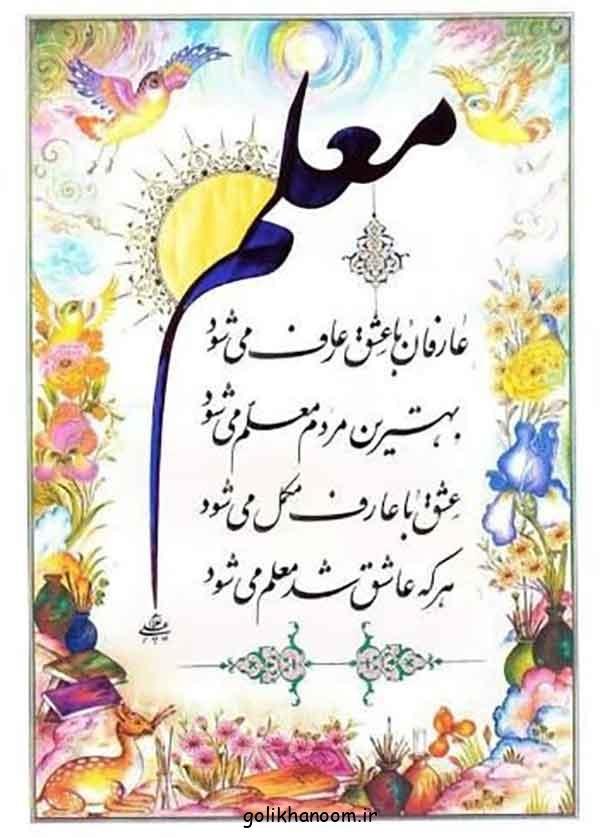 معلم
عارفان با عشق عارف می شود
بهترین مردم معلم می شود
عشق با عارف مکمل می شود
هر که عاشق شد معلم می شود
golikhanoom.ir